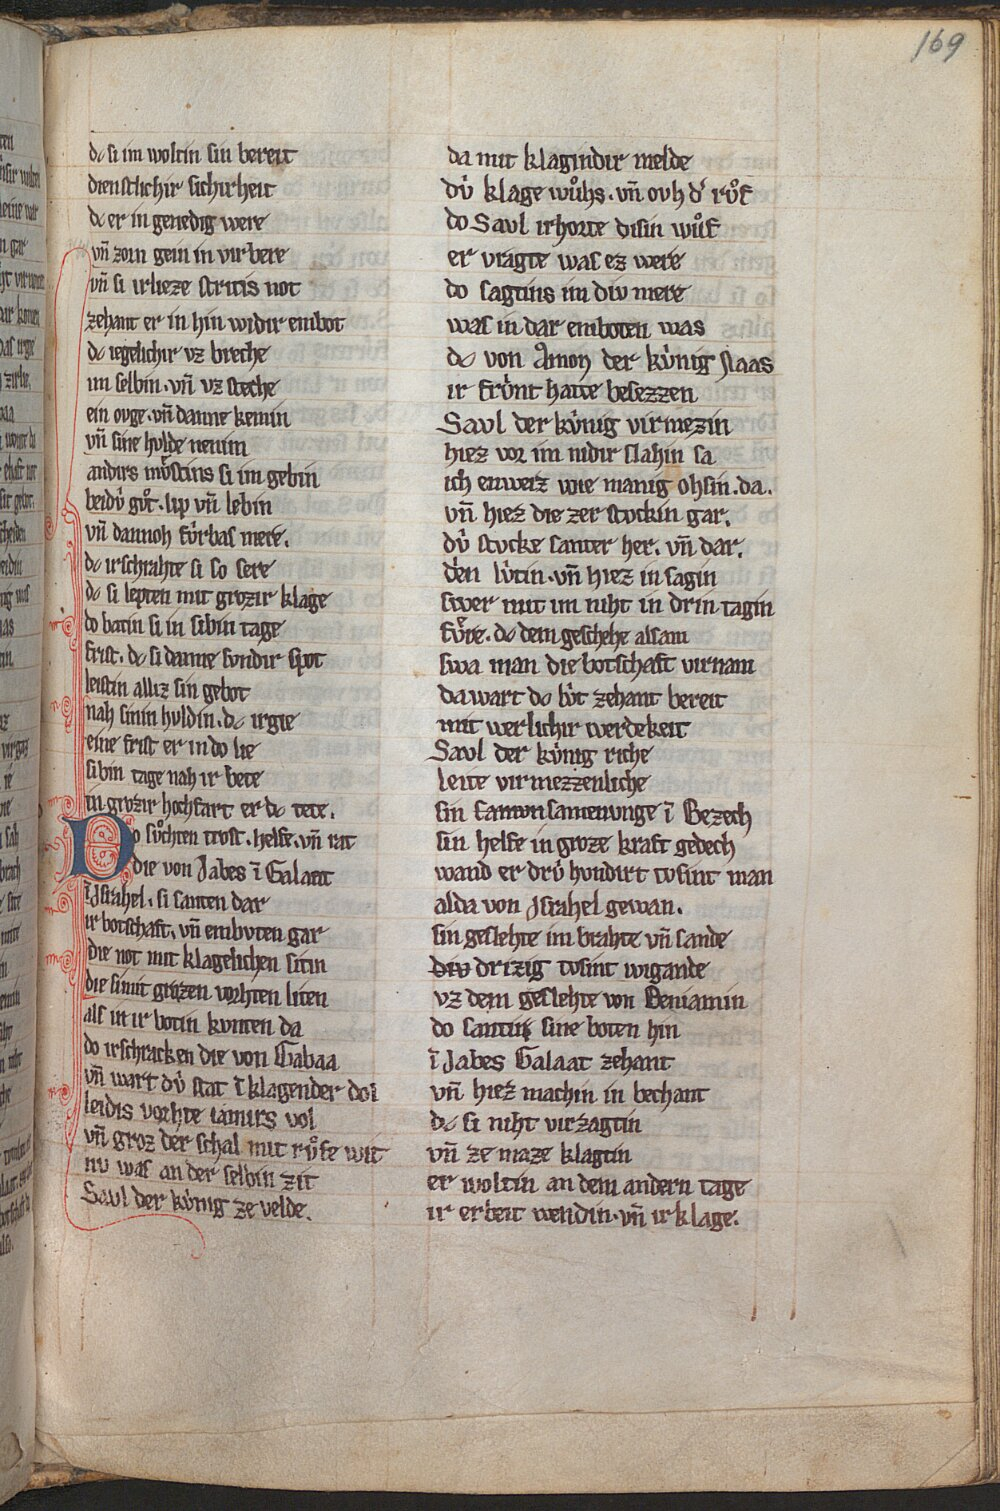 169
dc si im woltin sin bereit
dienstlichir sichirheit
dc er in genedig were
vn̄ zorn gein in virbere
vn̄ si irlieze stritis not
zehant er in hin widir enbot
dc iegelichir vz breche
im selbin . vn̄ vz steche
ein ovge . vn̄ danne kemin
vn̄ sine hvlde nemin
andirs mv̊stins si im gebin
beidv̇ gv̊t . lip vn̄ lebin
vn̄ dannoh fv́rbas mere .
dc irschrahte si so sere
dc si lepten mit grozir klage
do batin si in sibin tage
frist . dc si danne svndir spot
leistin alliz sin gebot
nah sinin hvldin . dc irgie
eine frist er in do lie
sibin tage nah ir bete
in grozir hochfart er dc tete .
Do sv̊chten trost . helfe . vn̄ rat
die von Jabes ī Galaat
ī Jsrahel . si santen dar
ir botschaft . vn̄ enbvten gar
die not mit klagelichen sitin
die si mit grozen vorhten liten
als in ir botin kvnten da
do irschracken die von Gabaa
vn̄ wart dv̇ stat ī klagender dol
leidis vorhte iamirs vol
vn̄ groz der schal mit rv̊fe wit
nv was an der selbin zit
Savl der kv́nig ze velde .
da mit klagindir melde
dv̇ klage wv̊hs . vn̄ ovh d' rv̊f
do Savl irhorte disin wv̊f
er vragte was ez were
do sagtins im div mere
was in dar enboten was
dc von Amon der kv́nig Naas
ir frv́nt hatte besezzen
Savl der kv́nig virmezin
hiez vor im nidir slahin sa
ich enweiz wie manig ohsin . da .
vn̄ hiez die zer stvckin gar .
dv̇ stvcke santer her . vn̄ dar .
den lv́tin . vn̄ hiez in sagin
swer mit im niht in drin tagin
fv̊re . dc dem geschehe alsam
swa man die botschaft virnam
da wart dc lv́t zehant bereit
mit werlichir werdekeit
Savl der kv́nig riche
leite virmezzenliche
sin samenvnge ī Bezech
sin helfe in groze kraft gedech
wand er drv́ hvndirt tvsint man
alda von Jsrahel gewan .
sin geslehte im brahte vn̄ sande
div drizig tvsint wigande
vz dem geslehte von Beniamin
do santin sine boten hin
ī Jabes Galaat zehant
vn̄ hiez machin in bechant
dc si niht virzagtin
vn̄ ze maze klagtin
er woltin an dem andern tage
ir erbeit wendin . vn̄ ir klage .